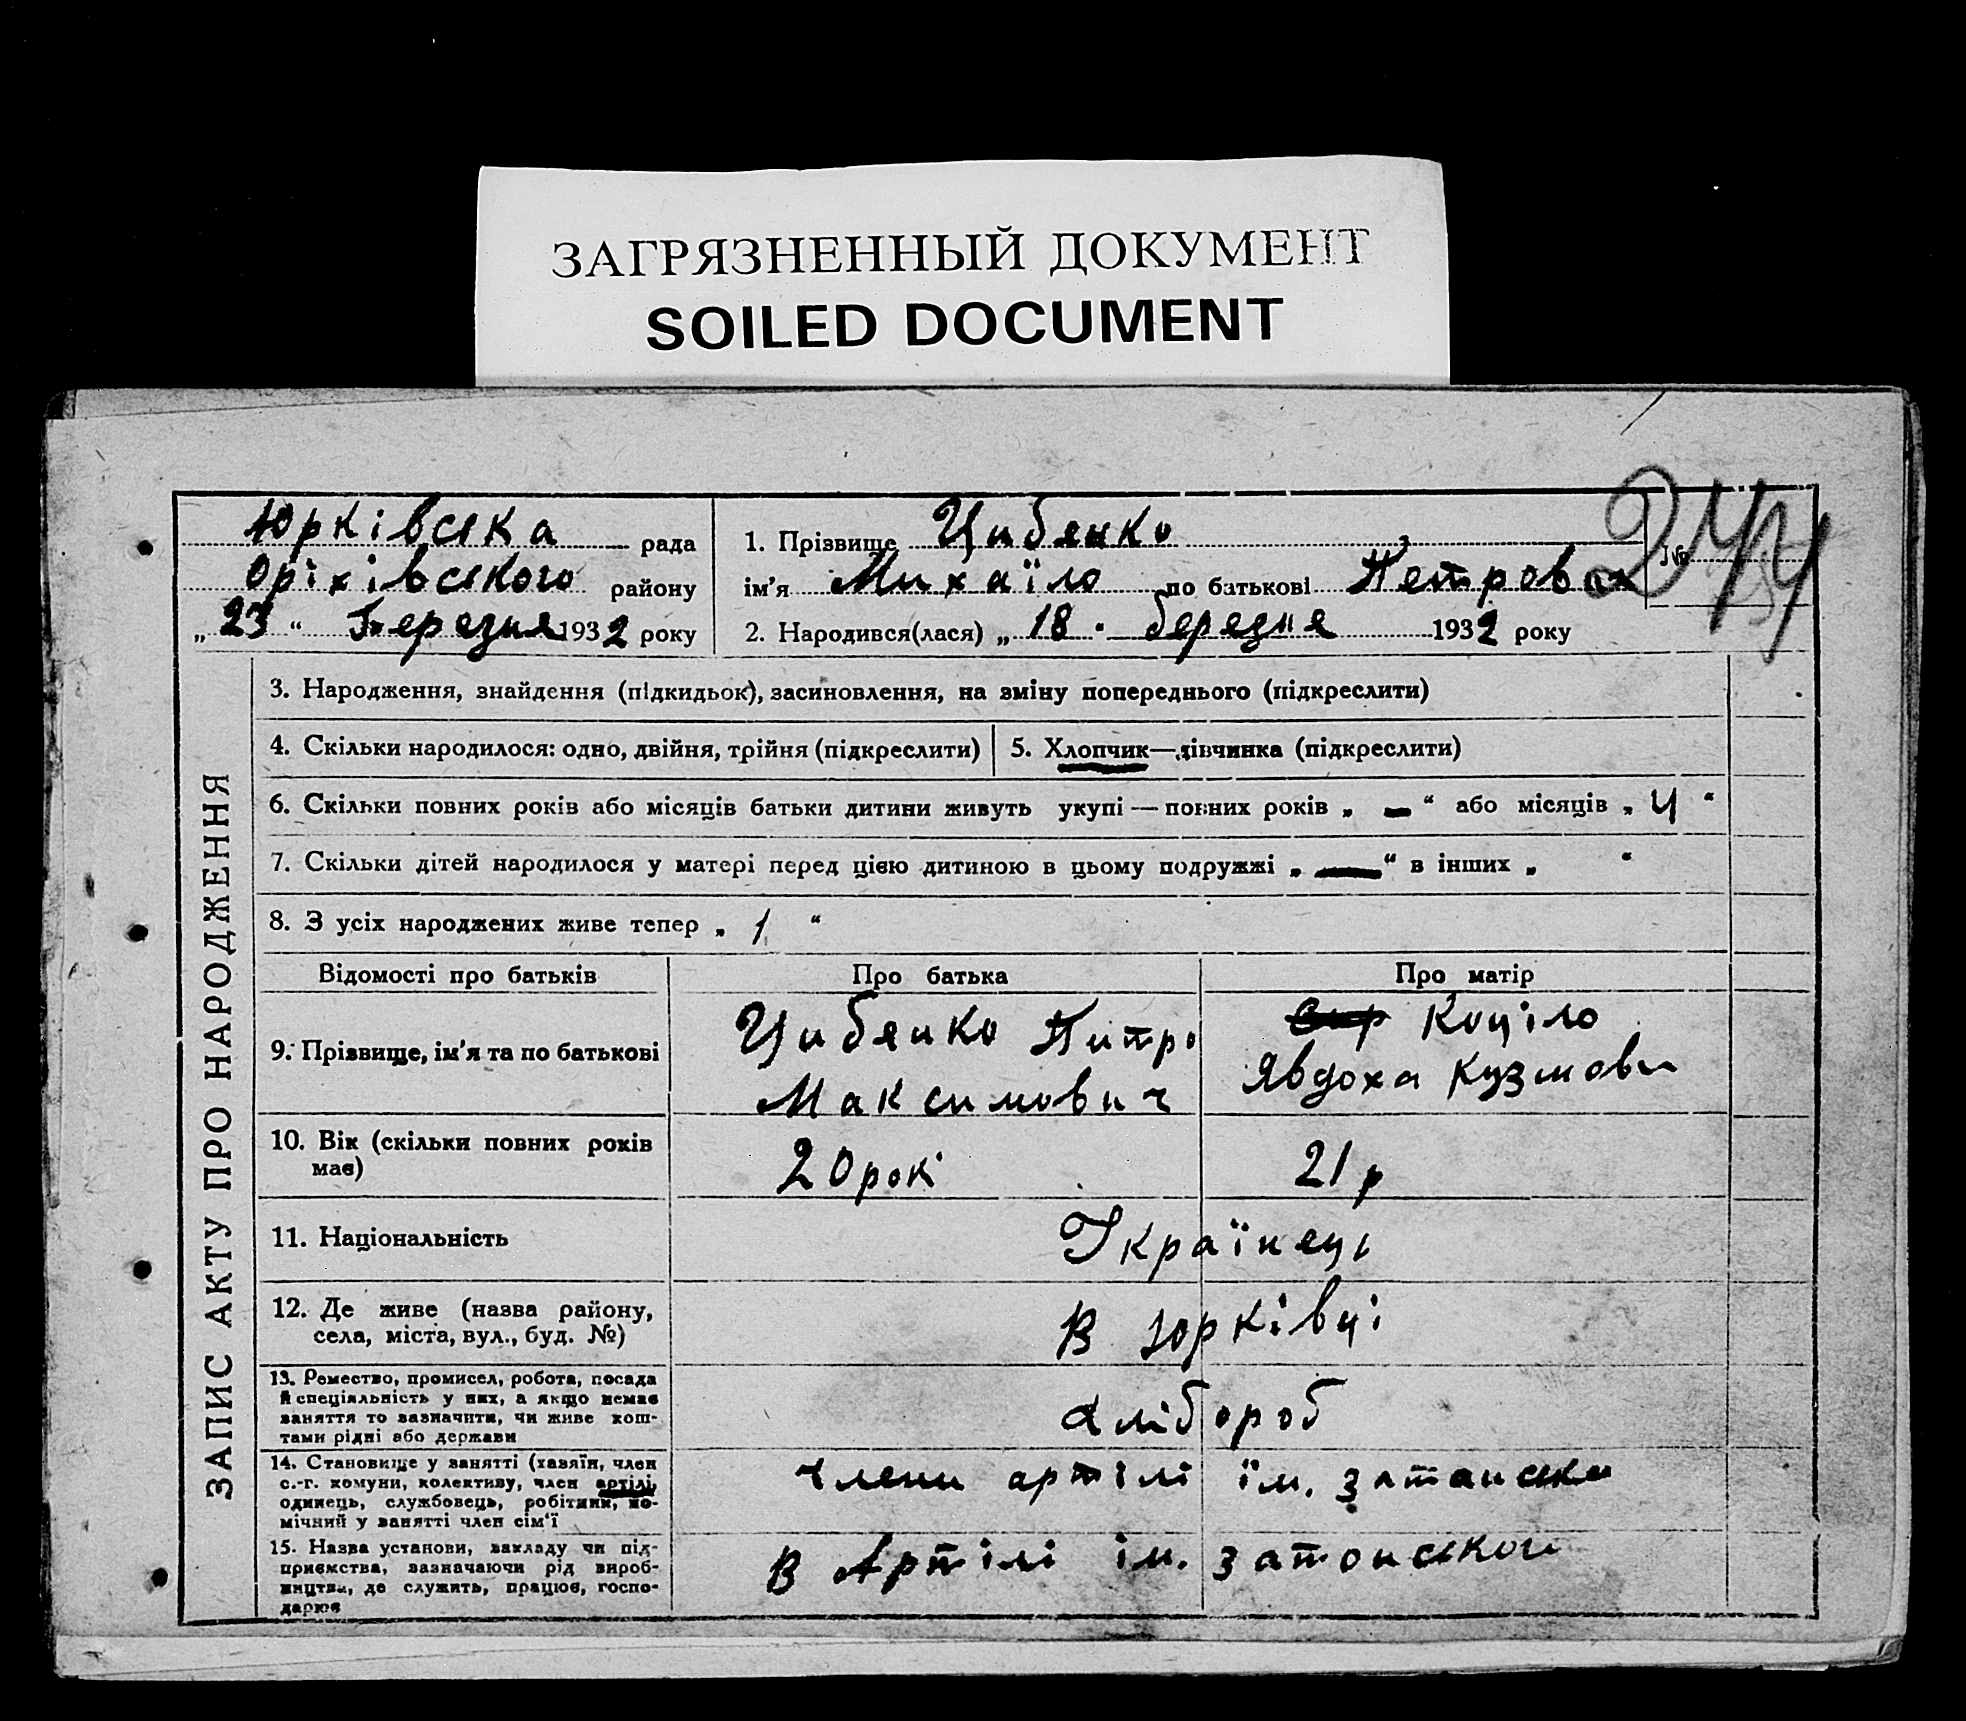 ЗАГРЯЗНЕННЫЙ ДОКУМЕНТ
SOILED DOCUMENT
Юрківська рада
Оріхівського району
„ 23 “ Березня 1932 року
1. Прізвище Цибенко
ім'я Михаїло по батькові Петрович
2. Народився(лася) „ 18 “ березня 1932 року
№
ЗАПИС АКТУ ПРО НАРОДЖЕННЯ
3. Народження, знайдення (підкидьок), засиновлення, на зміну попереднього (підкреслити)
4. Скільки народилося: одно, двійня, трійня (підкреслити)
5. Хлопчик—дівчинка (підкреслити)
6. Скільки повних років або місяців батьки дитини живуть укупі — повних років „ — “ або місяців „ 4 “
7. Скільки дітей народилося у матері перед цією дитиною в цьому подружжі „ — “ в інших „ “
8. З усіх народжених живе тепер „ 1 “
Відомості про батьків Про батька Про матір
9. Прізвище, ім'я та по батькові
Цибенко Питро
Максимович
Коціло
Явдоха Кузмовн
10. Вік (скільки повних років
має)
20 рокі
21 р
11. Національність
Українець
12. Де живе (назва району,
села, міста, вул., буд. №)
В Юрківці
13. Ремество, промисел, робота, посада
й спеціяльність у них, а якщо немає
заняття то зазначити, чи живе кош-
тами рідні або держави
хлібороб
14. Становище у занятті (хазяїн, член
с.-г. комуни, колективу, член артілі,
одинець, службовець, робітник, по-
мічний у занятті член сім'ї
члени артілі ім. Затонсько
15. Назва установи, закладу чи під-
приємства, зазначаючи рід вироб-
ництва, де служить, працює, госпо-
дарює
В Артілі ім. Затонського